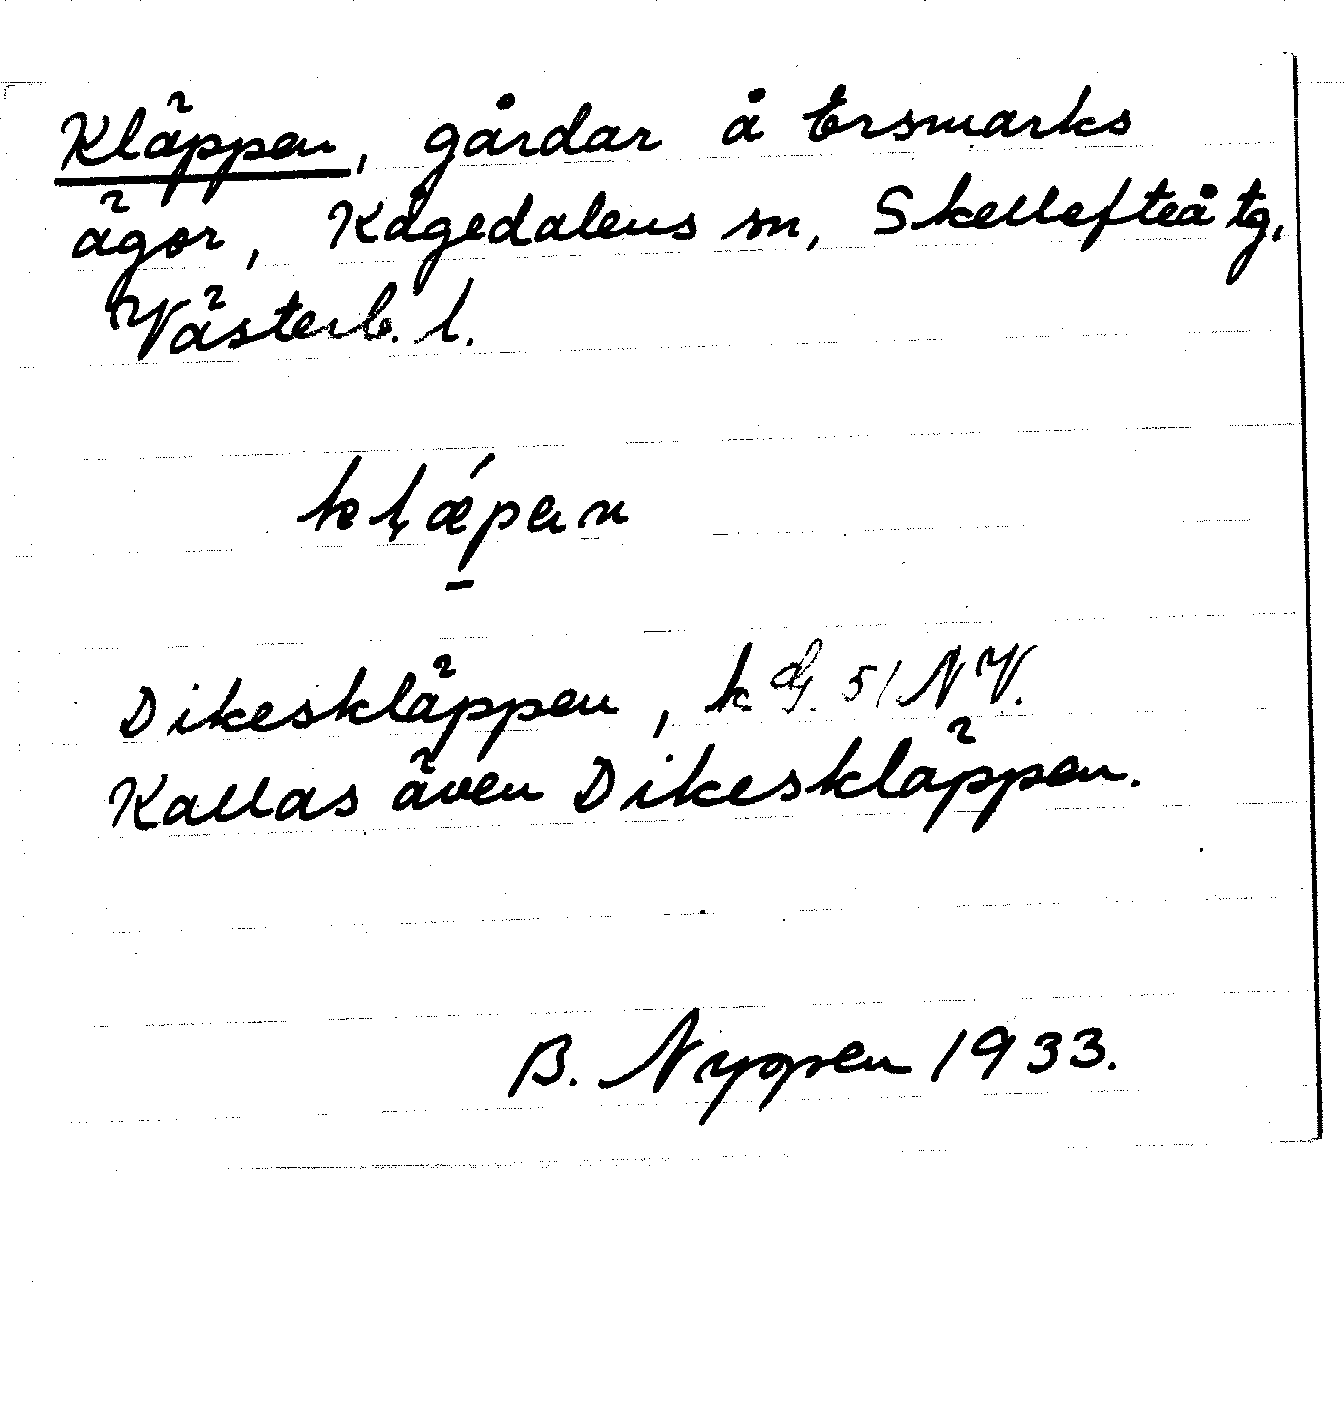 Kläppen, gårdar å Ersmarks
ägor, Kågedalens sn, Skellefteå tg,
Västerb. l.
kḷǽpen
Dikeskläppen, k G. 51 NV.
Kallas även Dikeskläppen.
B. Nygren 1933.